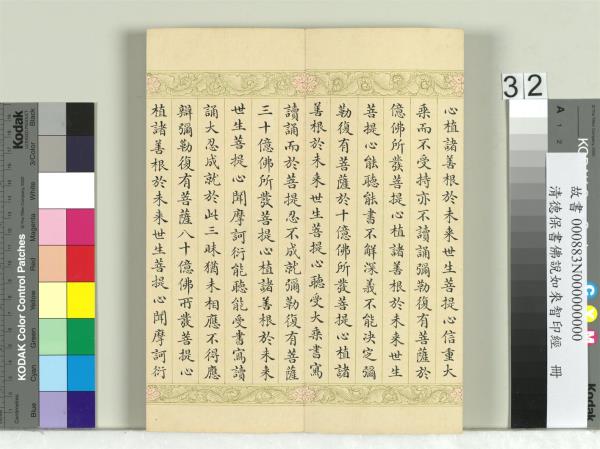 心植諸善根於未来世生菩提心信重大
乘而不受持亦不讀誦彌勒復有菩薩於
億佛所發菩提心植諸善根於未来世生
菩提心能聽能書不解深義不能決定彌
勒復有菩薩於十億佛所發菩提心植諸
善根於未来世生菩提心聽受大乘書寫
讀誦而於菩提忍不成就彌勒復有菩薩
三十億佛所發菩提心植諸善根於未来
世生菩提心聞摩訶衍能聽能受書寫讀
誦大忍成就於此三昧猶未相應不得應
辯彌勒復有菩薩八十億佛所發菩提心
植諸善根於未来世生菩提心聞摩訶衍
32
故書 000883N000000000
清德保書佛說如來智印經 冊
KODAK Color Control Patches
Kodak
Blue
Cyan
Green
Yellow
Red
Magenta
White
3/Color
Black
A
1
2
C
Y
M